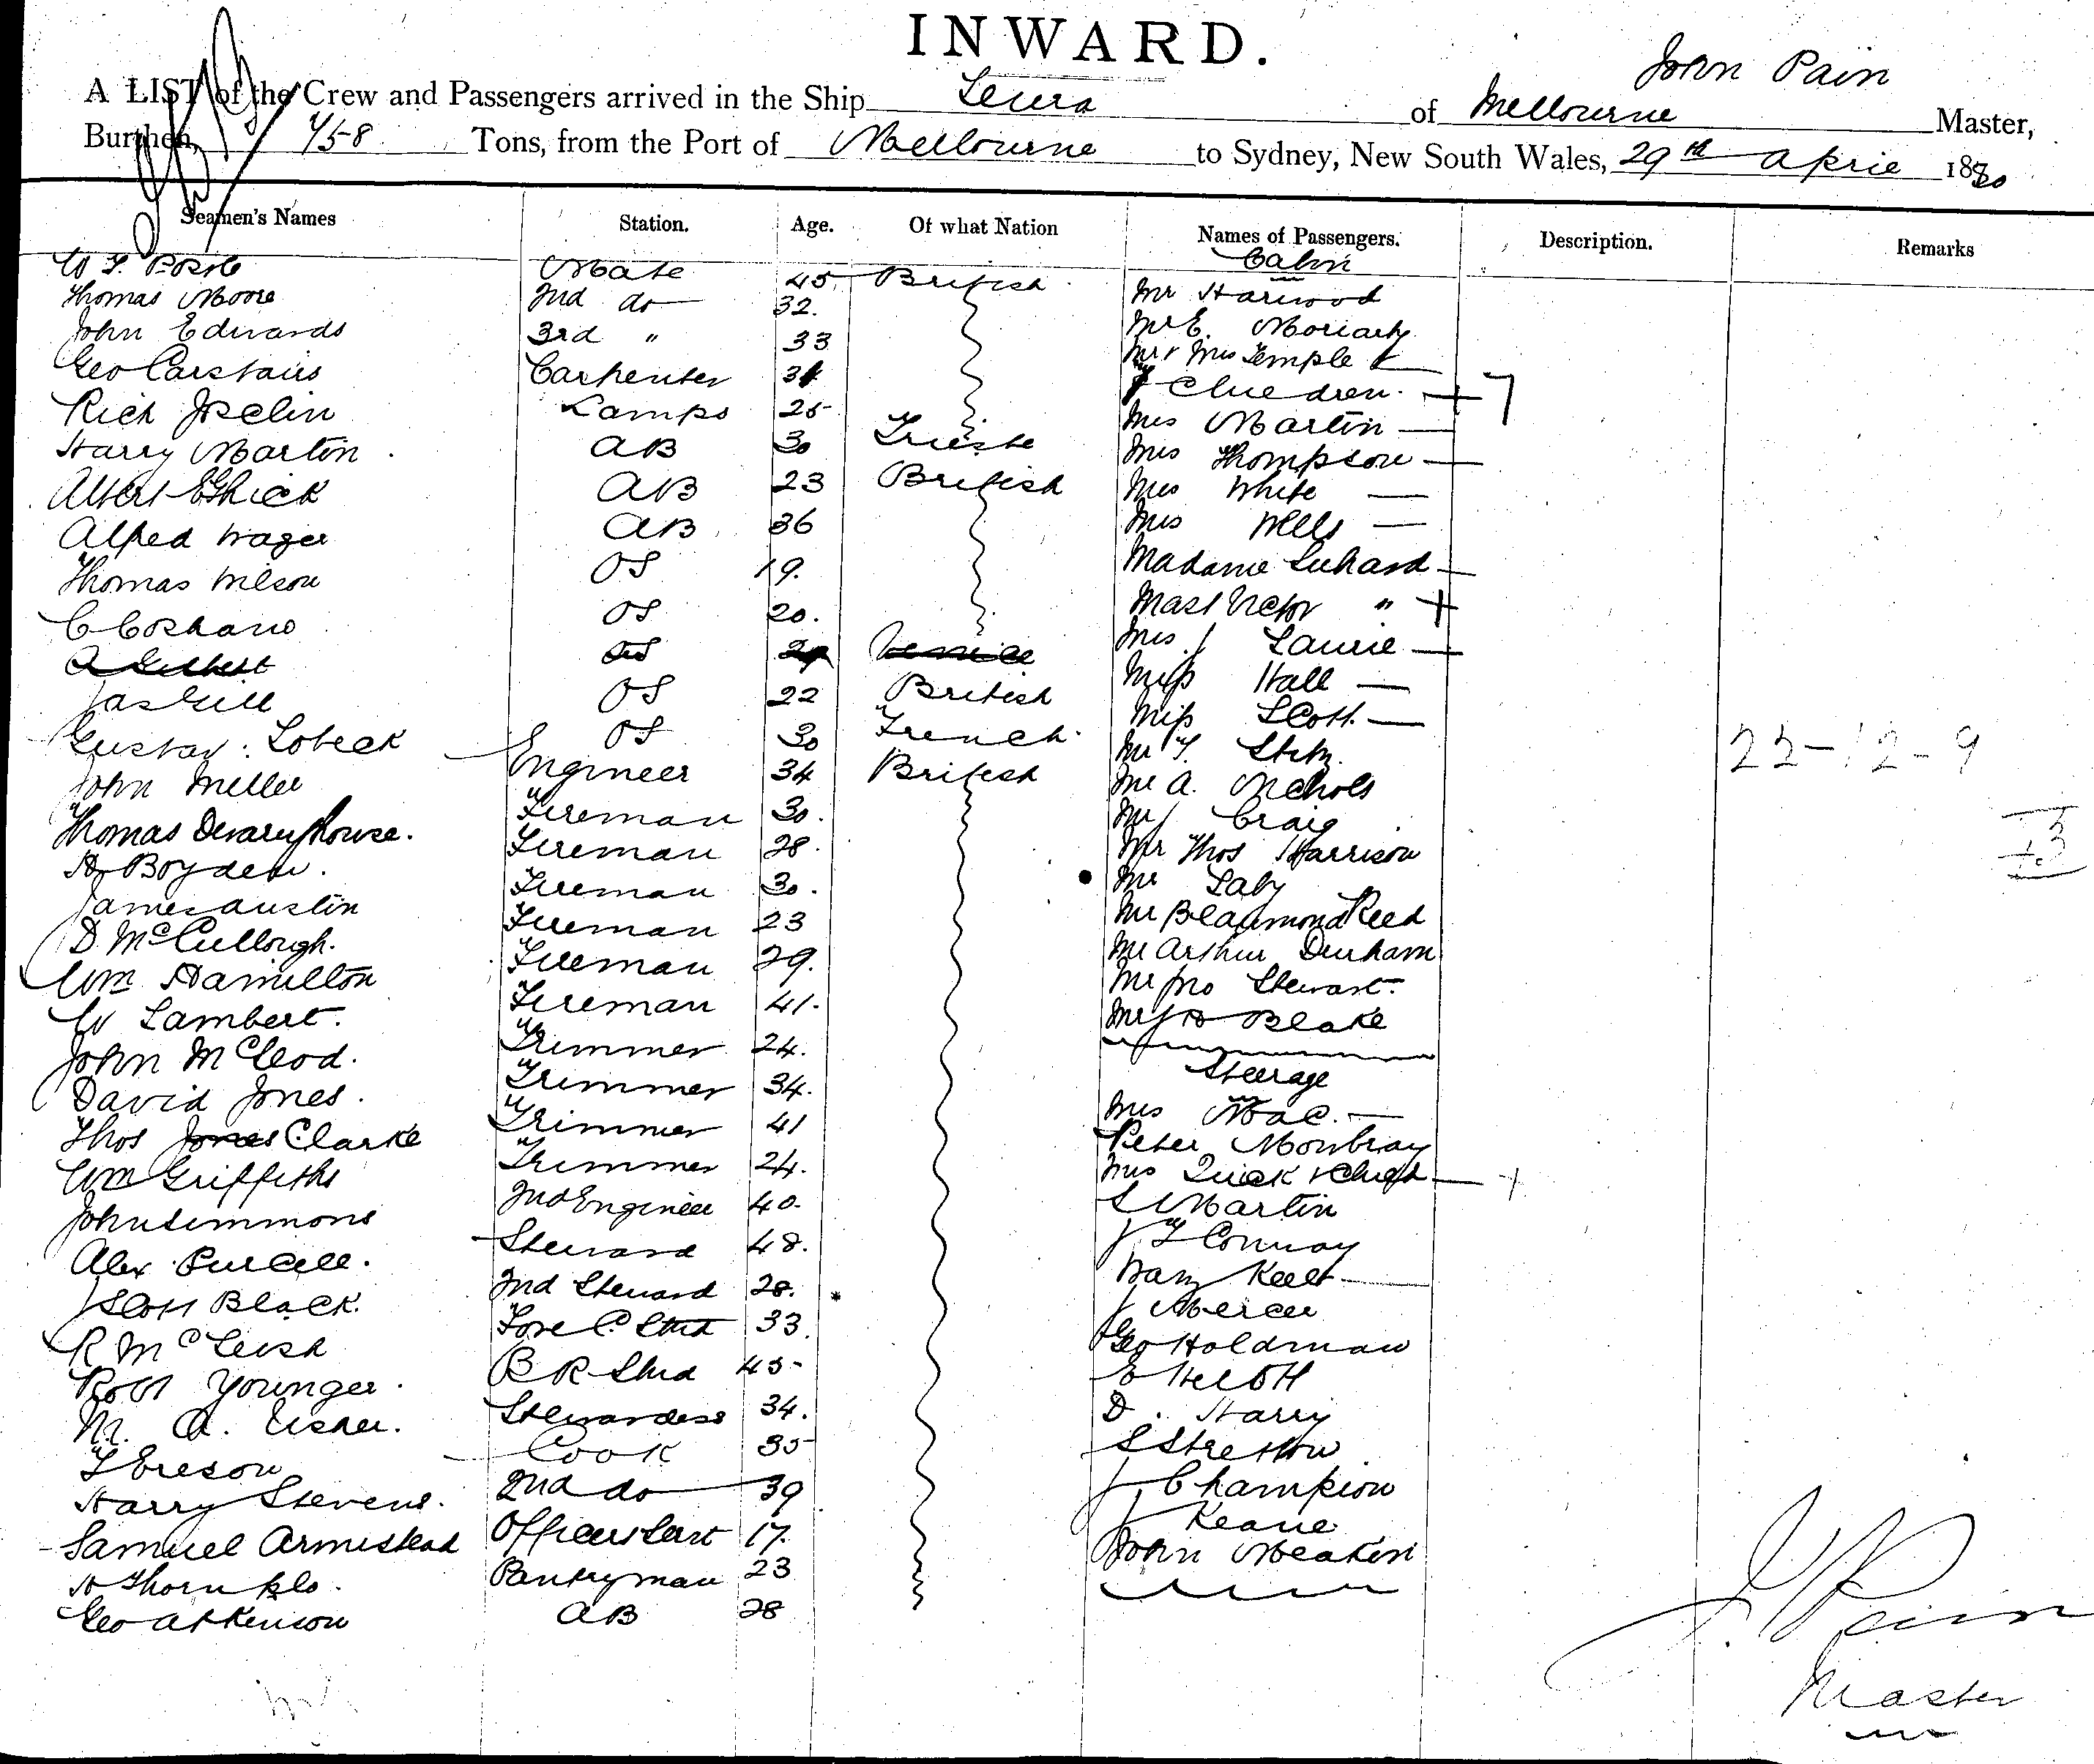 INWARD.
John Pain
A LIST of the Crew and Passengers arrived in the Ship Leura of Melbourne Master,
Burthen, Tons, from the Port of Melbourne to Sydney, New South Wales, 29th April 1880
Seamen's Names Station. Age. Of what Nation Names of Passengers. Description. Remarks
Cabin
Mate 45 British Mr Harwood
Thomas Moore 2nd do 32. Mr E. Moriarty
John Edwards 3rd " 33 Mr & Mrs Temple &
Geo Carstairs Carpenter 34 Children. 7
Rich Joselin Lamps 25 Mrs Martin
Harry Martin AB 30 Trieste Mrs Thompson
Albert AB 23 British Mrs White
Alfred Wager AB 36 Mrs Wells
Thomas Wilson OS 19. Madame
OS 20. Mast Victor "
A Gilbert OS Venice Mrs J Laurie
Jas Gill OS 22 British Miss Hall
Gustav Lobeck OS 30 French Miss Scott
John Miller Engineer 34 British Mr T.
22-12-9
Mr A. Nichols
Thomas Fireman 30. Mr J Craig
13
H Boyden. Fireman 28. Mr Thos Harrison
James Austin Fireman 30. Mr Laby
D. McCullough. Fireman 23 Mr Beaumond Reed
Wm Hamilton Fireman 29. Mr Arthur Durham
W Lambert. Fireman 41. Mr Jno Stewart
John McCleod. Trimmer 24. Mr J H Blake
David Jones. Trimmer 34. Steerage
Thos Jones Clarke Trimmer 41 Mrs Mac.
Wm Griffiths Trimmer 24. Peter Mowbray
John Simmons 2nd Engineer 40. Mrs Quick & Child
Alex Purcell. Steward 48. S Martin
J Scott Black. 2nd Steward 28. J T Conway
R McLeish Fore C. Std 33. Keelt
Robt Younger. B R Std 45 J Mercer
M. A. Usher. Stewardess 34. Geo Holdman
T Ereson Cook 35 E
Harry Stevens. 2nd do 39 D. Harry
Samuel Armistead Officers Servt 17. S Stretton
H Pantryman 23 J Champion
Geo Atkinson AB 28 J Keane
John Meakin
J Pain
Master